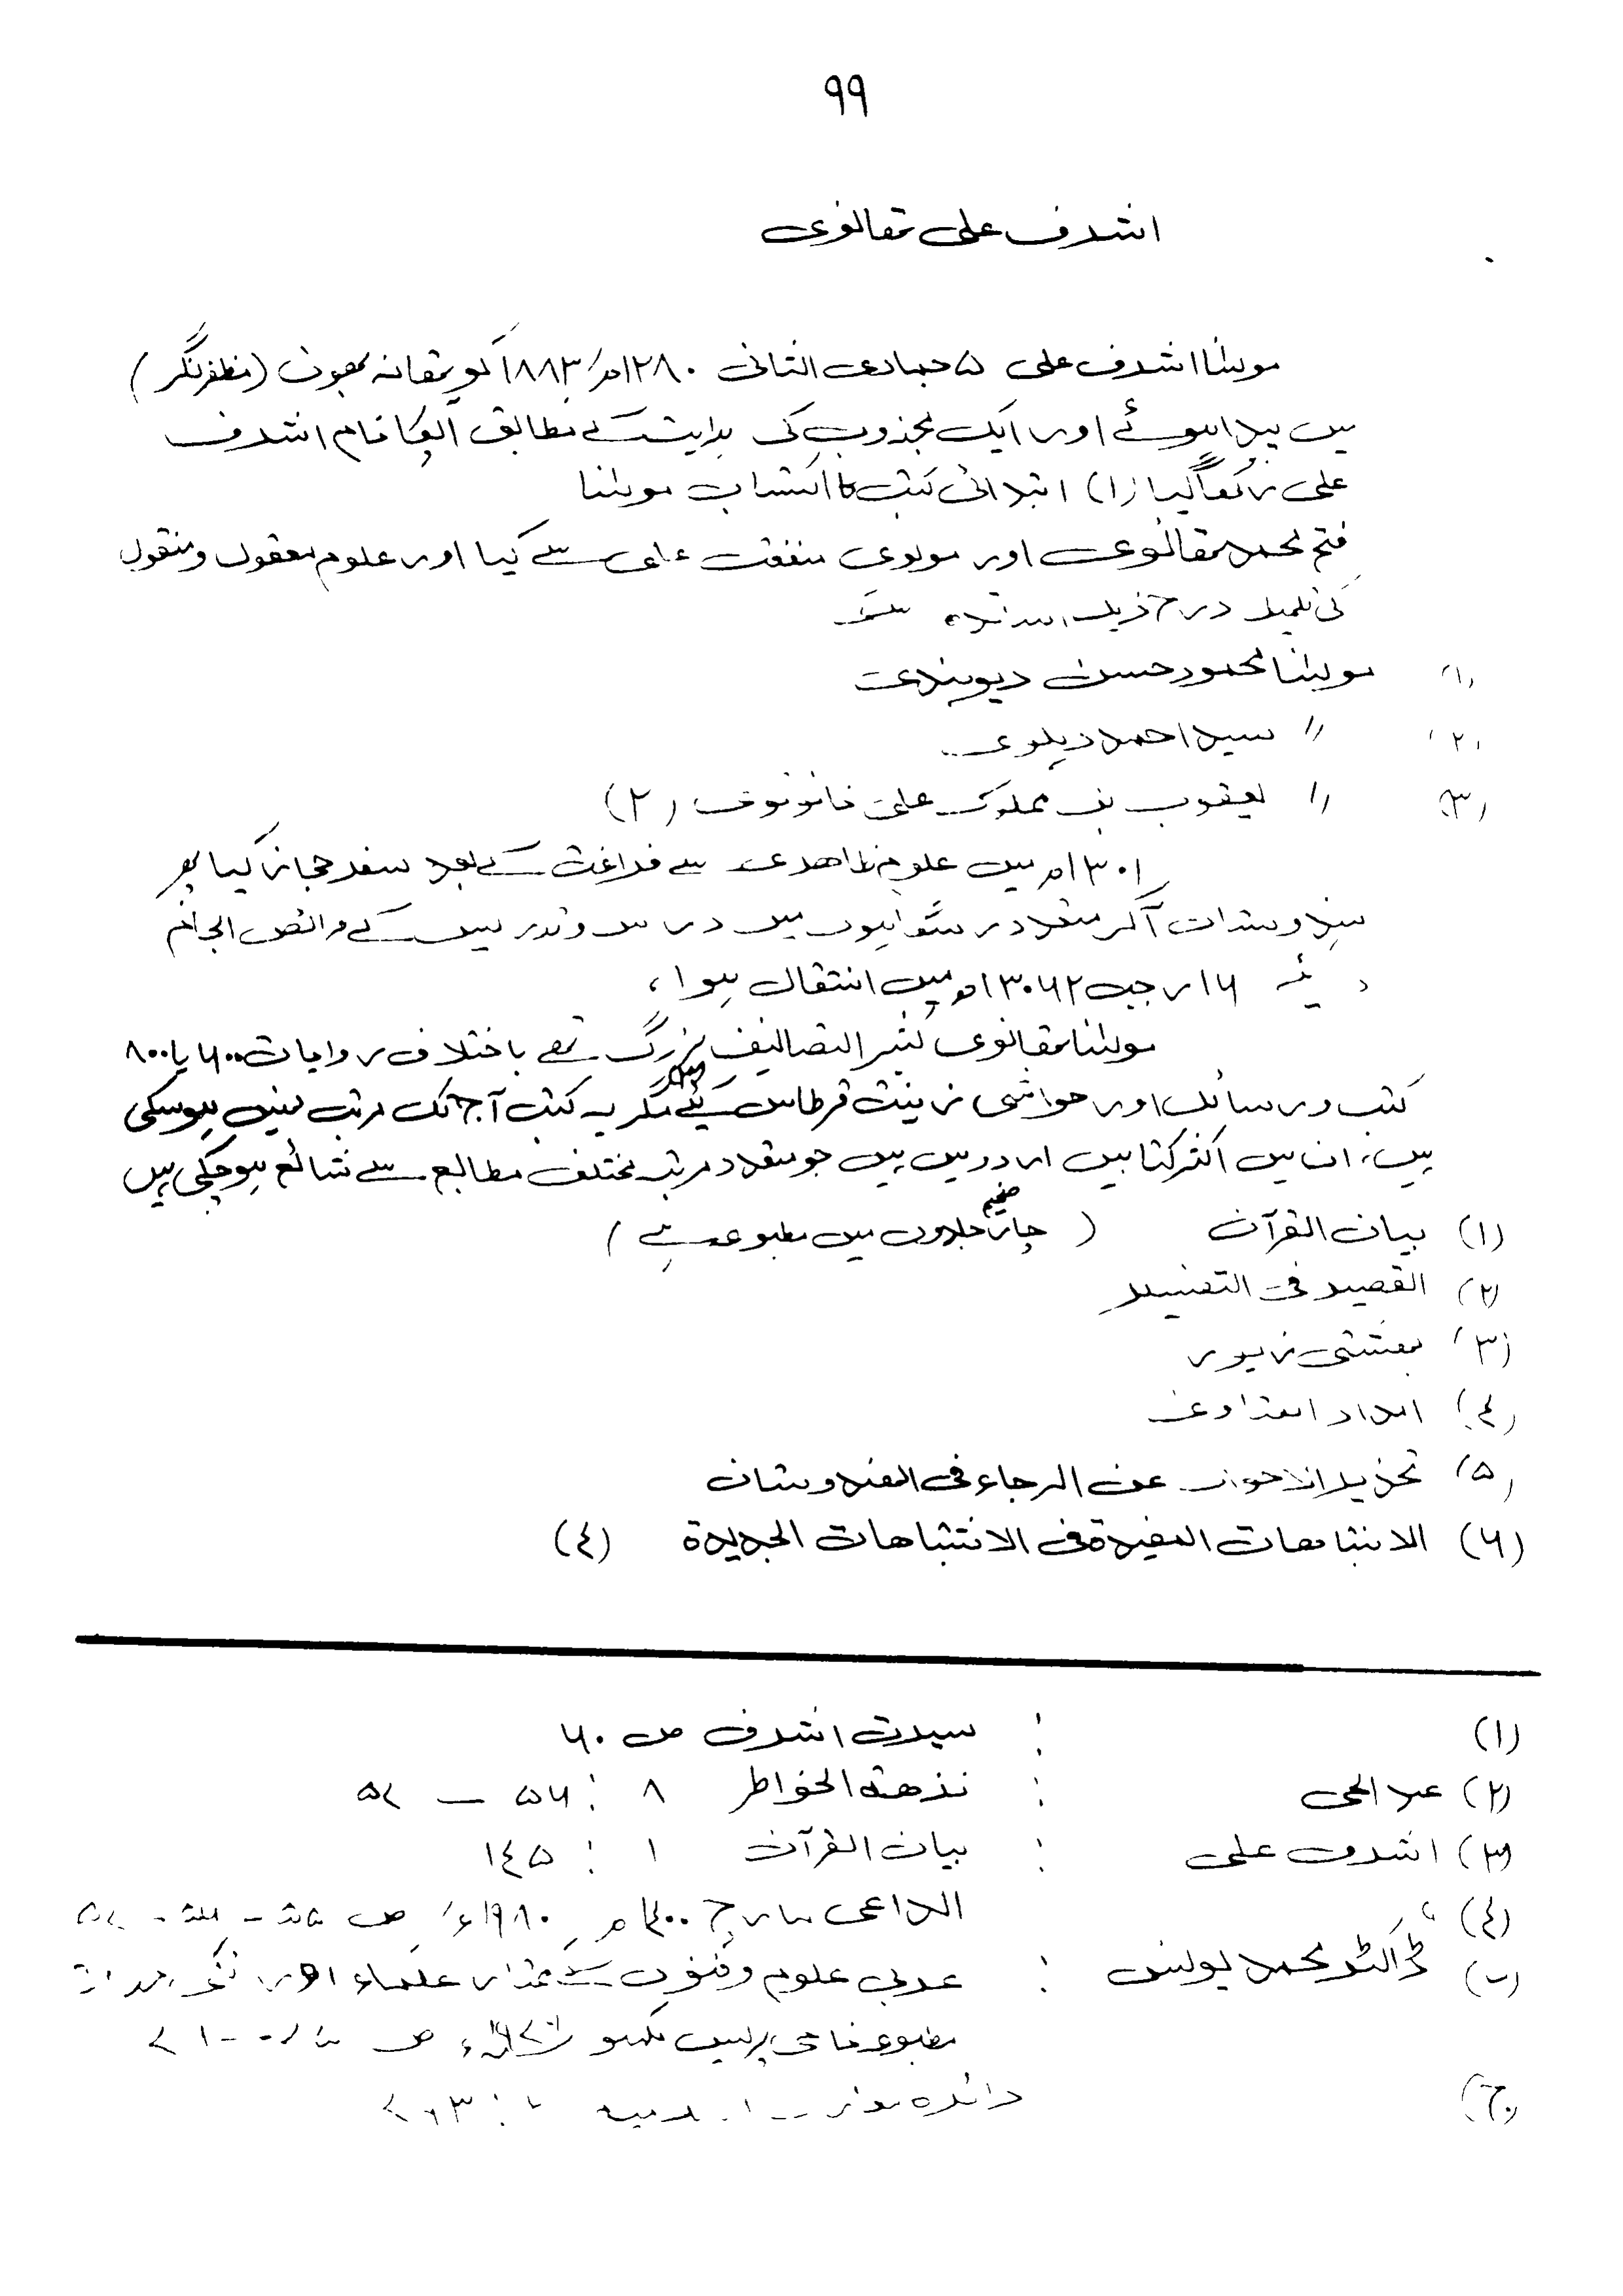 ۹۹
اشرف علی تھانوی
مولٰنا اشرف علی ۵ جمادی الثانی ۱۲۸۰ھ/۱۸۸۳ء کو تھانہ بھون (مظفرنگر)
میں پیدا ہوئے اور ایک مجذوب کی ہدایت کے مطابق آپکا نام اشرف
علی رکھا گیا (۱) ابتدائی کتب کا اکتساب مولٰنا
فتح محمد تھانوی اور مولوی منفعت علی سے کیا اور علوم معقول و منقول
کی تکمیل درج ذیل اساتذہ سے کی
(۱) مولٰنا محمود حسن دیوبندی
(۲) // سید احمد دہلوی
(۳) // یعقوب بن مملوک علی نانوتوی (۲)
۱۳۰۱ھ میں علوم ظاهری سے فراغت کے بعد سفر حجاز کیا پھر
ہندوستان آکر متعدد درسگاہوں میں درس و تدریس کے فرائض انجام
دیئے ۱۶ رجب ۱۳۰۶۲ھ میں انتقال ہوا،
مولٰنا تھانوی کثیر التصانیف بزرگ تھے باختلاف روایات ۶۰۰ یا ۸۰۰
کتب و رسائل اور حواشی زینت قرطاس کئے (۳) مگر یہ کتب آج تک مرتب نہیں ہوسکی
ہیں، ان میں اکثر کتابیں اردو میں ہیں جو متعدد مرتبہ مختلف مطابع سے شائع ہوچکی ہیں
(۱) بیان القرآن (چار ضخیم جلدوں میں مطبوعہ ہے)
(۲) القصید فی التفسیر
(۳) بھشتی زیور
(۴) امداد الفتاوی
(۵) تحذیر الاخوان عن الرجاء فی الھندوستان
(۶) الانتباھات المفیدة فی الاشتباھات الجدیدة (۴)
(۱) : سیرت اشرف ص ۶۰
(۲) عبدالحی : نزھتہ الخواطر ۸ : ۵۶ — ۵۷
(۳) اشرف علی : بیان القرآن ۱ : ۱۴۵
(۴) الداعی مارچ ۱۴۰۰ھ ۱۹۸۰ء ص
(ب) ڈاکٹر محمد یونس : عربی علوم و فنون کے ممتاز علماء اور
مطبوعہ نامی پریس لکھنو ص
(ج) دائرہ